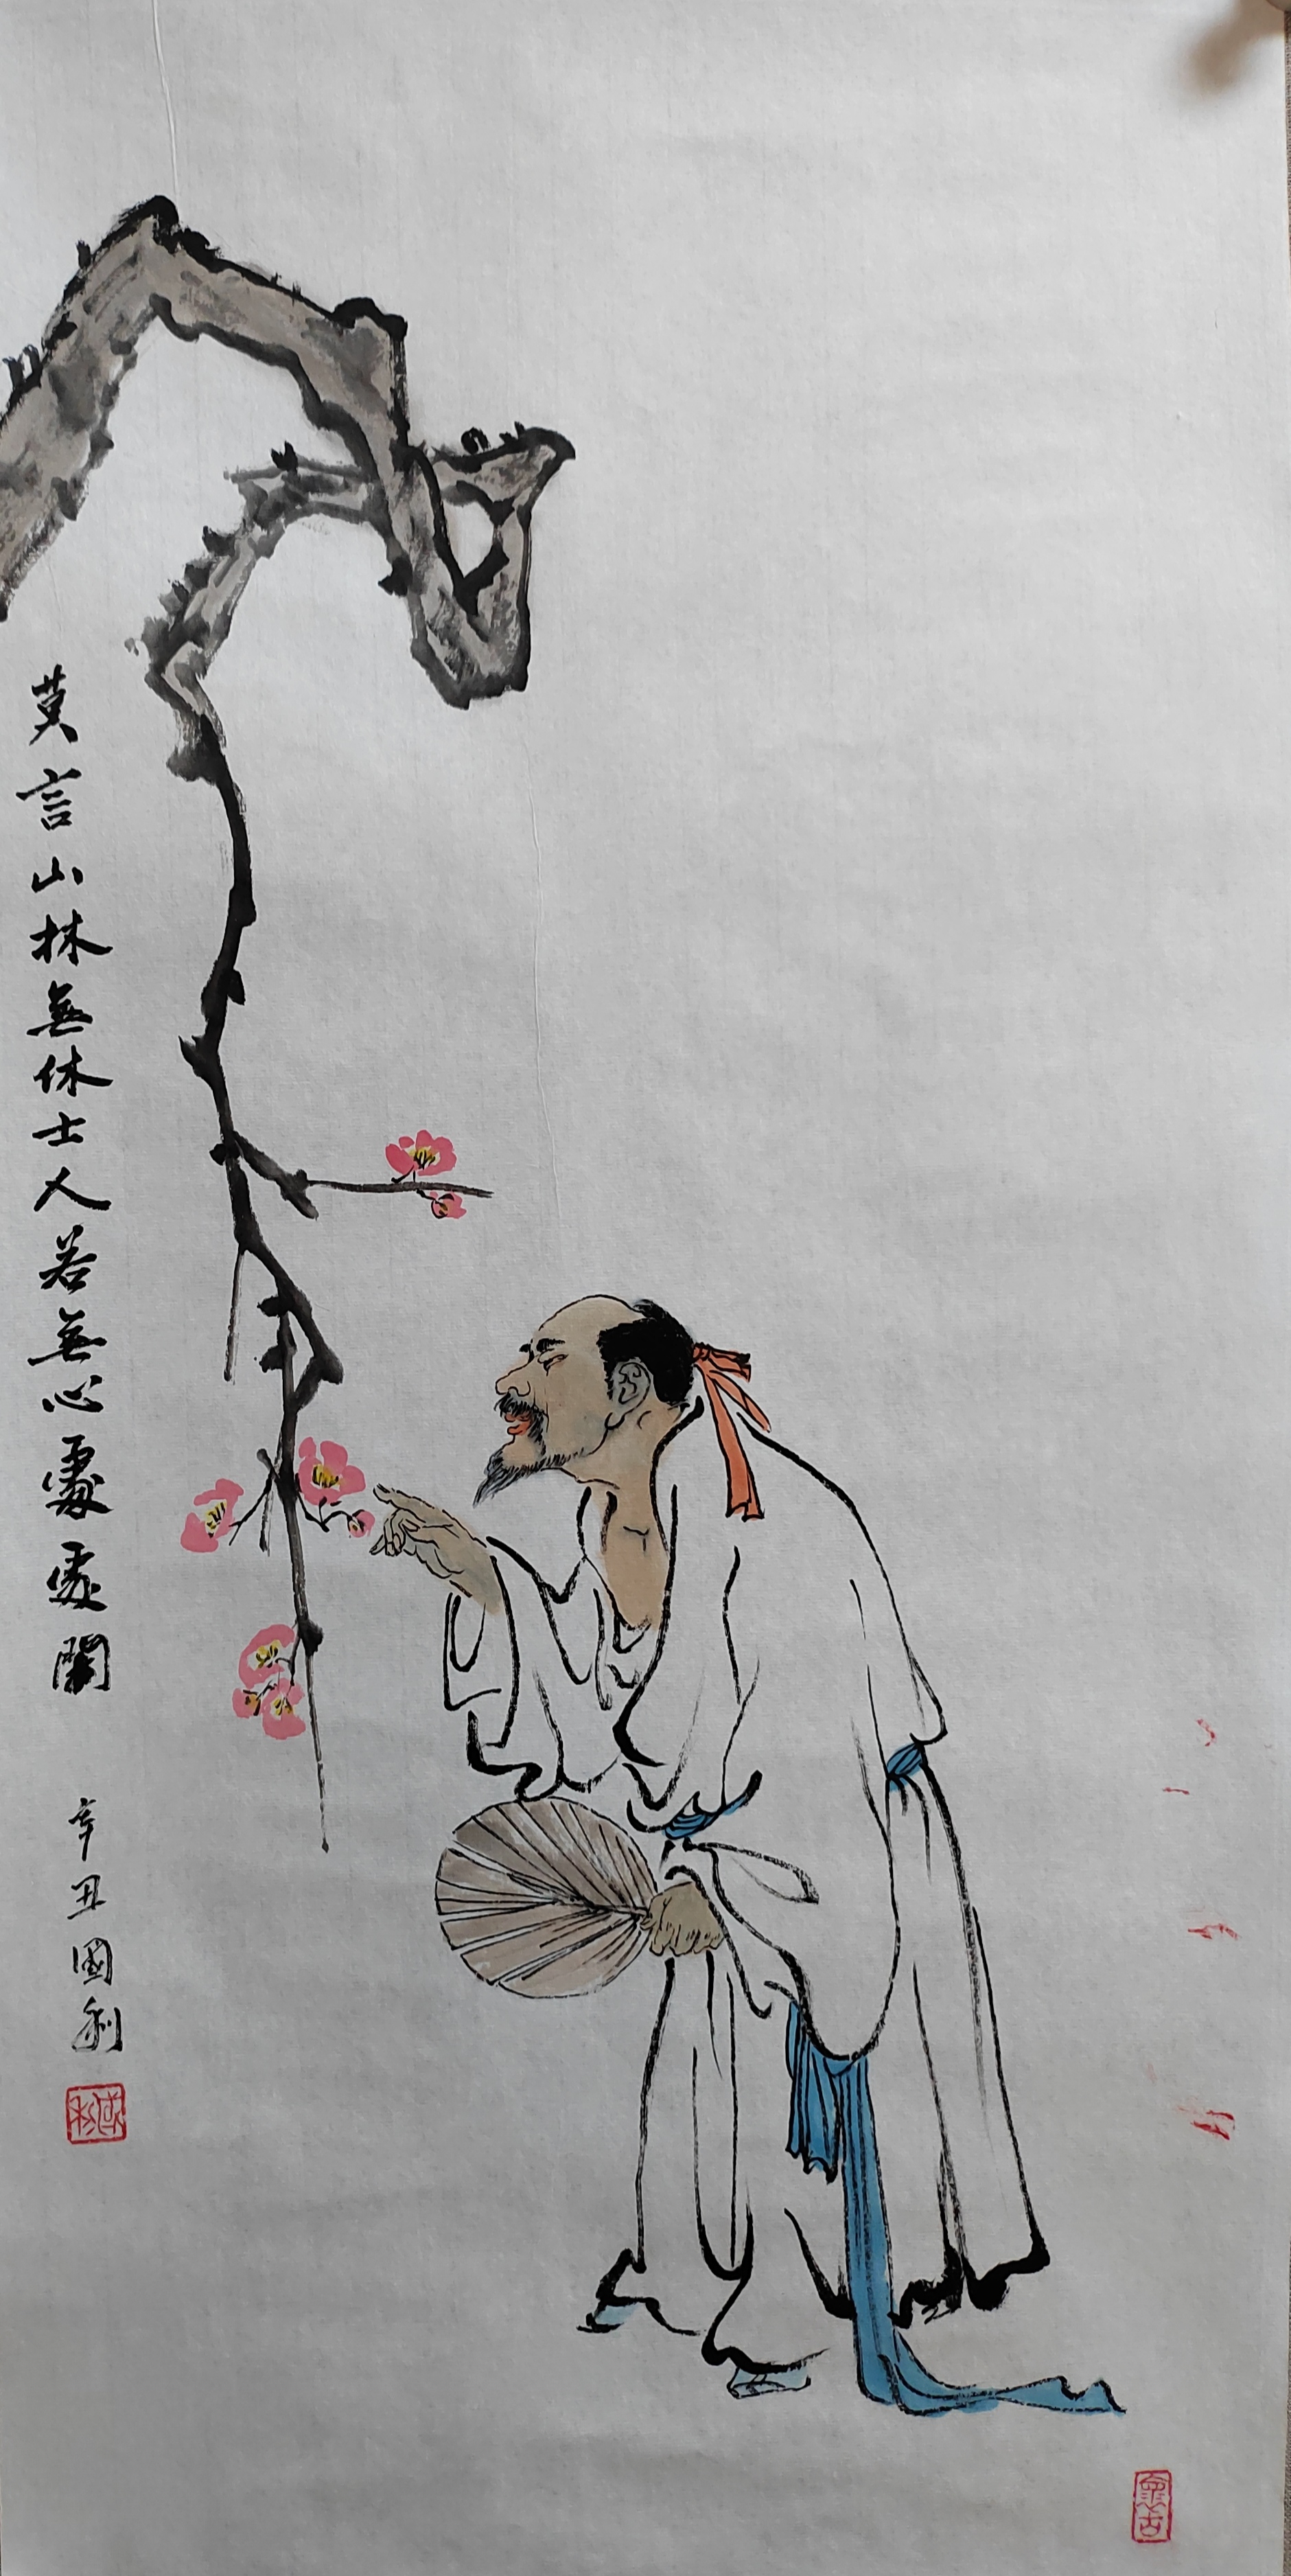 莫言山林無休士人若無心處處閑
辛丑國利